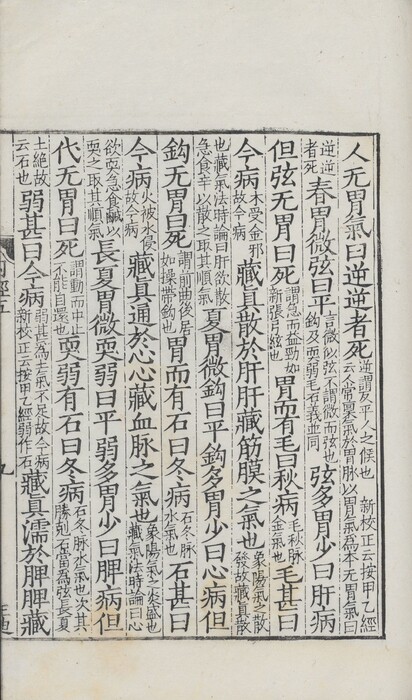 人无胃氣曰逆逆者死逆謂反平人之候也 新校正云按甲乙經云人常稟氣於胃脉以胃氣為本无胃氣曰
逆逆者死春胃微弦曰平言微似弦不謂微而弦也鈎及耎弱毛石義並同弦多胃少曰肝病
但弦无胃曰死謂急而益勁如新張弓弦也胃而有毛曰秋病毛秋脉金氣也毛甚曰
今病木受金邪故今病藏真散於肝肝藏筋膜之氣也象陽氣之散發故藏真散
也藏氣法時論曰肝欲散急食辛以散之取其順氣夏胃微鈎曰平鈎多胃少曰心病但
鈎无胃曰死謂前曲後居如操帶鈎也胃而有石曰冬病石冬脉水氣也石甚曰
今病火被水侵故今病藏真通於心心藏血脉之氣也象陽氣之炎盛也藏氣法時論曰心
欲耎急食鹹以耎之取其順氣長夏胃微耎弱曰平弱多胃少曰脾病但
代无胃曰死謂動而中止不能自還也耎弱有石曰冬病石冬脉水氣也次其勝剋石當為弦長夏
土絶故云石也弱甚曰今病弱甚為土氣不足故今病新校正云按甲乙經弱作石藏真濡於脾脾藏
經五
九